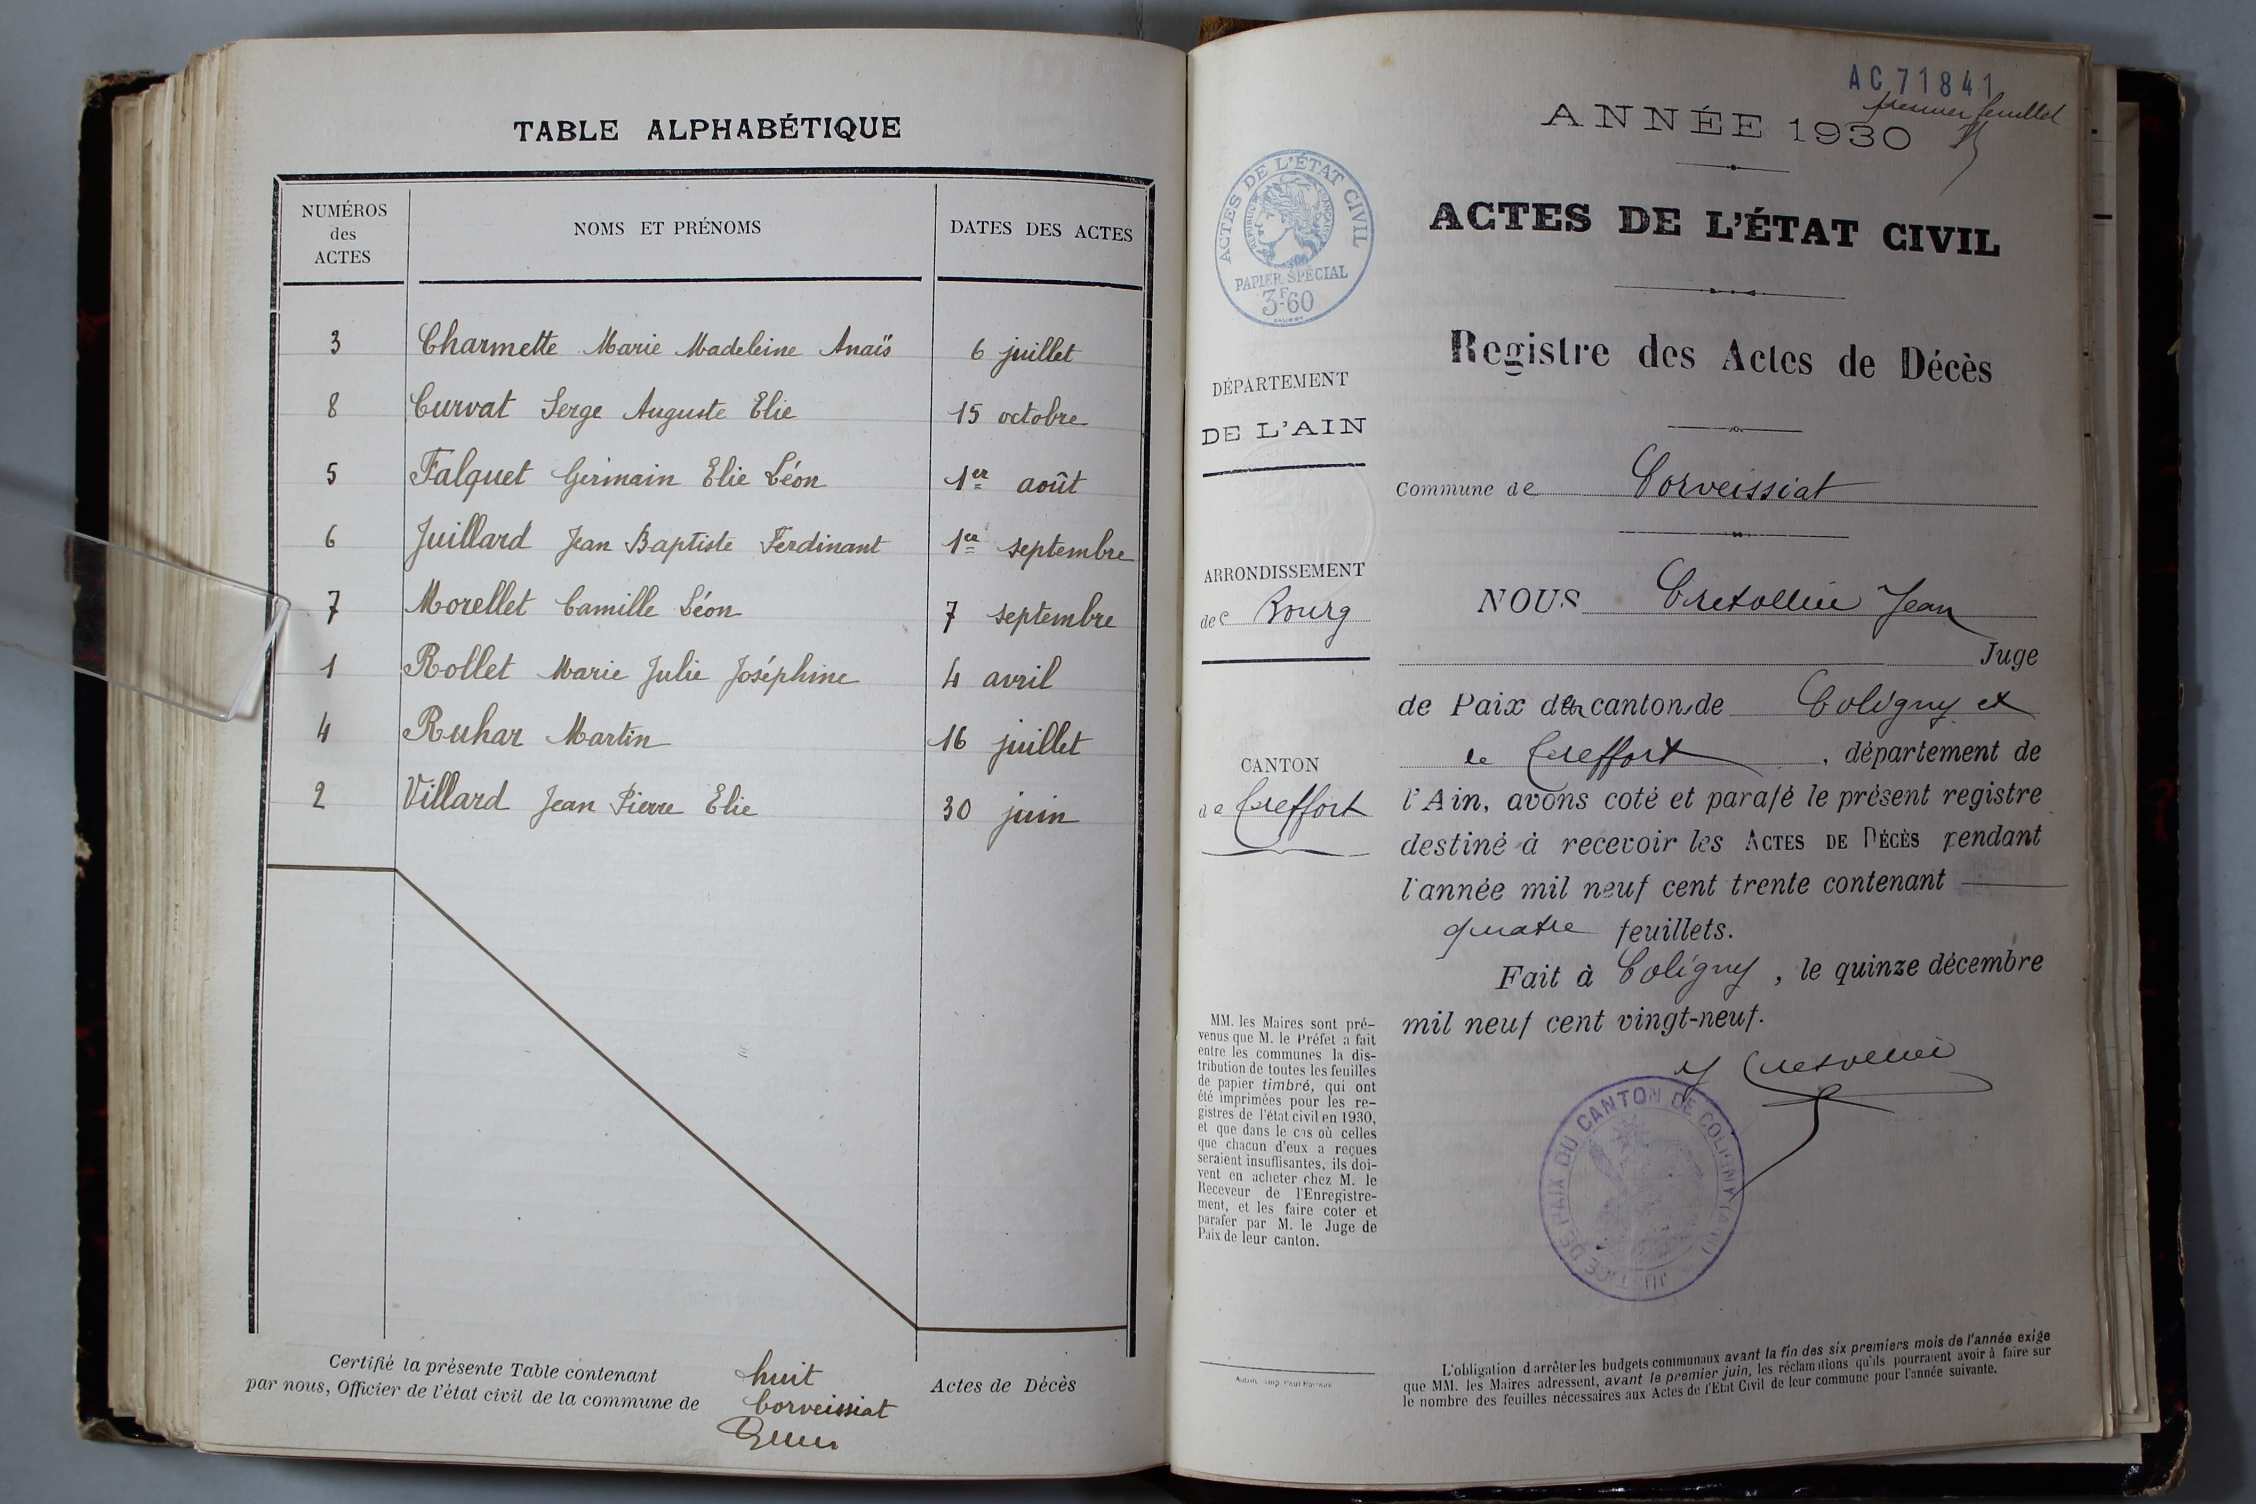 TABLE ALPHABÉTIQUE
NUMÉROS
des
ACTES
NOMS ET PRÉNOMS
DATES DES ACTES
3 Charmette Marie Madeleine Anaïs 6 juillet
8 Curvat Serge Auguste Elie 15 octobre
5 Falquet Germain Elie Léon 1er août
6 Juillard Jean Baptiste Ferdinant 1er septembre
7 Morellet Camille Léon 7 septembre
1 Rollet Marie Julie Joséphine 4 avril
4 Ruhar Martin 16 juillet
2 Villard Jean Pierre Elie 30 juin
Certifié la présente Table contenant huit Actes de Décès
par nous, Officier de l'état civil de la commune de Corveissiat
AC 71841
premier feuillet
ANNÉE 1930
ACTES DE L'ÉTAT CIVIL
RÉPUBLIQUE FRANÇAISE
PAPIER SPÉCIAL
3F.60
ACTES DE L'ÉTAT CIVIL
Registre des Actes de Décès
DÉPARTEMENT
DE L'AIN
Commune de Corveissiat
ARRONDISSEMENT
de Bourg
CANTON
de Treffort
NOUS Jean
Juge
de Paix des cantons de Coligny et
de Treffort, département de
l'Ain, avons coté et parafé le présent registre
destiné à recevoir les ACTES DE DÉCÈS pendant
l'année mil neuf cent trente contenant
quatre feuillets.
Fait à Coligny, le quinze décembre
mil neuf cent vingt-neuf.
MM. les Maires sont pré-
venus que M. le Préfet a fait
entre les communes la dis-
tribution de toutes les feuilles
de papier timbré, qui ont
été imprimées pour les re-
gistres de l'état civil en 1930,
et que dans le cas où celles
que chacun d'eux a reçues
seraient insuffisantes, ils doi-
vent en acheter chez M. le
Receveur de l'Enregistre-
ment, et les faire coter et
parafer par M. le Juge de
Paix de leur canton.
JUSTICE DE PAIX DU CANTON DE COLIGNY (AIN)
L'obligation d'arrêter les budgets communaux avant la fin des six premiers mois de l'année exige
que MM. les Maires adressent, avant le premier juin, les réclamations qu'ils pourraient avoir à faire sur
le nombre des feuilles nécessaires aux Actes de l'Etat Civil de leur commune pour l'année suivante.